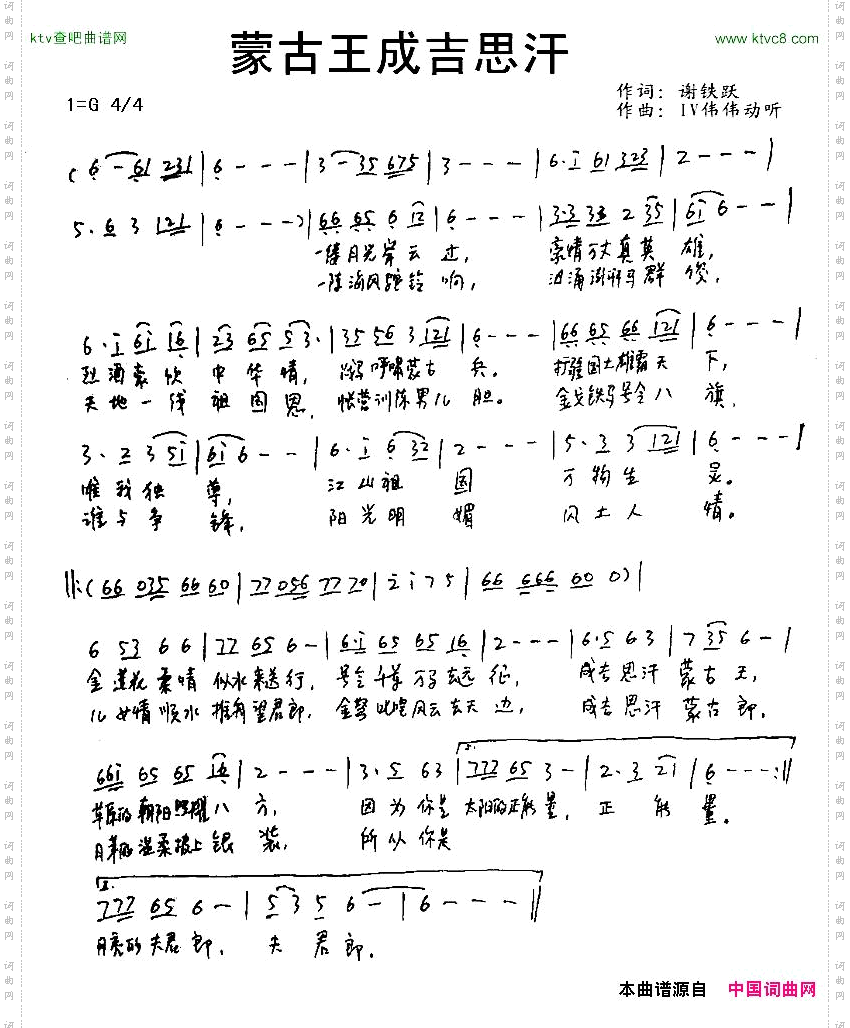 ktv查吧曲谱网
蒙古王成吉思汗
www.ktvc8.com
作词：谢铁跃
1=G 4/4
作曲：IV伟伟动听
(6 - 61 231 | 6 - - - | 3 - 35 675 | 3 - - - | 6·i 61 323 | 2 - - - |
5· 6 3 121 | 6 - - - ) | 66 65 6 12 | 6 - - - | 3·3 33 2 35 | 6i 6 - - |
一缕月光 云 边， 豪情万丈真英 雄，
一阵海风驼铃 响， 汹涌澎湃马群 俊，
6· i 6i 16 | 23 65 53· | 35 56 3 121 | 6 - - - | 66 65 66 121 | 6 - - - |
烈酒豪饮 中 华 情， 呼啸蒙古 兵。 打疆国土雄霸天 下，
天地一线 祖国恩， 帐营训练男儿 胆。 金戈铁马号令八 旗，
3· 2 3 5i | 6i 6 - - | 6· i 6 32 | 2 - - - | 5· 3 3 121 | 6 - - - |
唯我独 尊， 江山祖 国 万物生 灵。
谁与争 锋， 阳光明 媚 风土人 情。
||:(66 035 66 60 | 77 056 77 70 | 2 i 7 5 | 66 666 60 0) |
6 53 6 6 | 77 65 6 - | 6·i 65 65 16 | 2 - - - | 6·5 6 3 | 7 35 6 - |
金莲花柔情 似水来送行， 号令千军万马去远 征， 成吉思汗 蒙古王，
儿女情顺水 推舟望君郎， 金弩 风云去天 边， 成吉思汗 蒙古郎，
66i 65 65 16 | 2 - - - | 3· 5 6 3 | 777 65 3 - | 2· 3 2i | 6 - - - :||
草原的朝阳照耀八 方， 因为你是 太阳的正能量， 正 能 量。
月 的温柔披上银 装， 所以你是
2.
777 65 6 - | 5 3 5 6 - | 6 - - - ||
月亮的夫君郎， 夫 君 郎。
本曲谱源自 中国词曲网